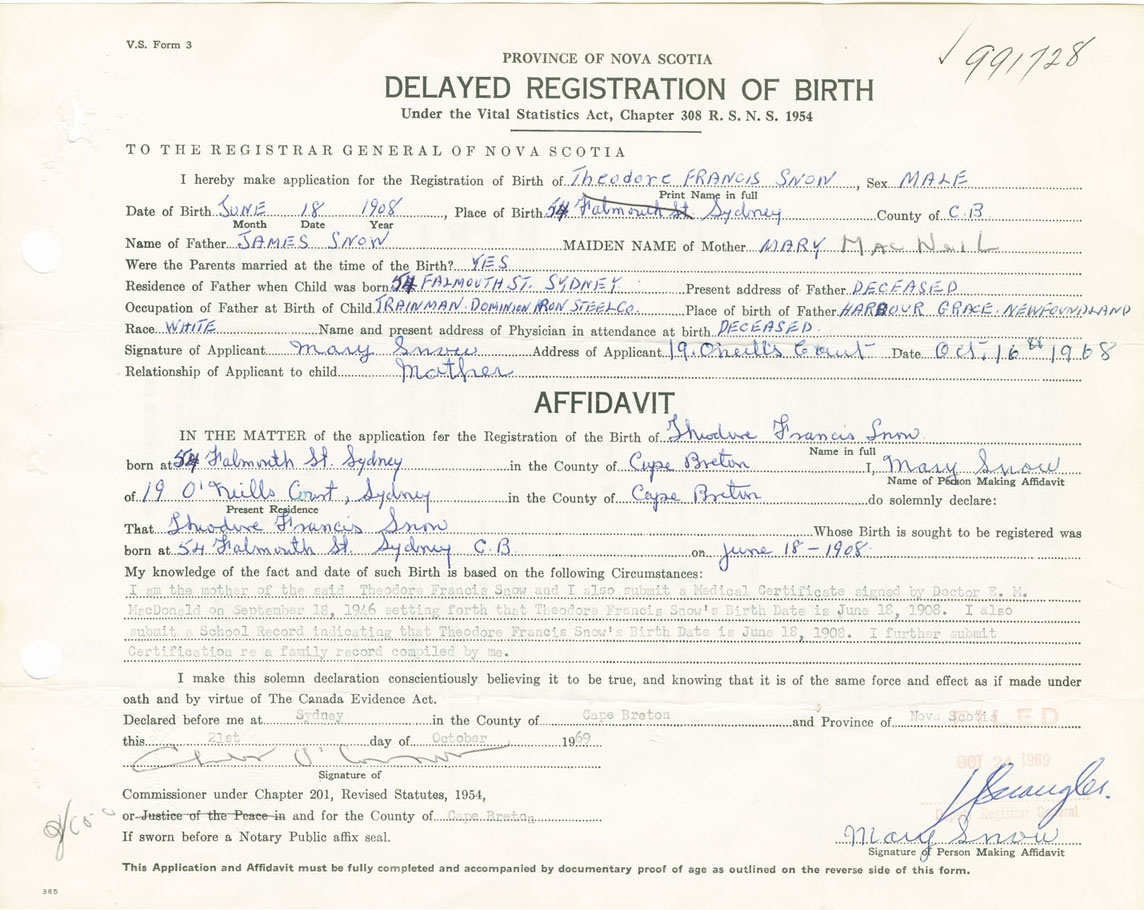 V.S. Form 3
991728
PROVINCE OF NOVA SCOTIA
DELAYED REGISTRATION OF BIRTH
Under the Vital Statistics Act, Chapter 308 R. S. N. S. 1954
TO THE REGISTRAR GENERAL OF NOVA SCOTIA
I hereby make application for the Registration of Birth of Theodore FRANCIS SNOW, Sex MALE
Print Name in full
Date of Birth JUNE 18 1908, Place of Birth 54 Falmouth St Sydney County of C.B
Month Date Year
Name of Father JAMES SNOW MAIDEN NAME of Mother MARY MacNeil
Were the Parents married at the time of the Birth? YES
Residence of Father when Child was born 54 FALMOUTH ST. SYDNEY. Present address of Father DECEASED
Occupation of Father at Birth of Child TRAINMAN. DOMINION IRON STEEL CO. Place of birth of Father HARBOUR GRACE. NEWFOUNDLAND
Race WHITE Name and present address of Physician in attendance at birth DECEASED.
Signature of Applicant Mary Snow Address of Applicant 19. Oneill's Court Date Oct. 16th 1968
Relationship of Applicant to child Mother
AFFIDAVIT
IN THE MATTER of the application for the Registration of the Birth of Theodore Francis Snow
Name in full
born at 54 Falmouth St. Sydney in the County of Cape Breton I, Mary Snow
Name of Person Making Affidavit
of 19 O'Neills Court, Sydney in the County of Cape Breton do solemnly declare:
Present Residence
That Theodore Francis Snow Whose Birth is sought to be registered was
born at 54 Falmouth St. Sydney C.B. on June 18 - 1908.
My knowledge of the fact and date of such Birth is based on the following Circumstances:
I am the mother of the said Theodore Francis Snow and I also submit a Medical Certificate signed by Doctor E. M.
MacDonald on September 18, 1946 setting forth that Theodore Francis Snow's Birth Date is June 18, 1908. I also
submit a School Record indicating that Theodore Francis Snow's Birth Date is June 18, 1908. I further submit
Certification re a family record compiled by me.
I make this solemn declaration conscientiously believing it to be true, and knowing that it is of the same force and effect as if made under
oath and by virtue of The Canada Evidence Act.
Declared before me at Sydney in the County of Cape Breton and Province of Nova Scotia
FILED
this 21st day of October 1969
OCT 24 1969
Signature of
Commissioner under Chapter 201, Revised Statutes, 1954,
or Justice of the Peace in and for the County of Cape Breton
Deputy Registrar General
If sworn before a Notary Public affix seal.
Mary Snow
Signature of Person Making Affidavit
This Application and Affidavit must be fully completed and accompanied by documentary proof of age as outlined on the reverse side of this form.
385